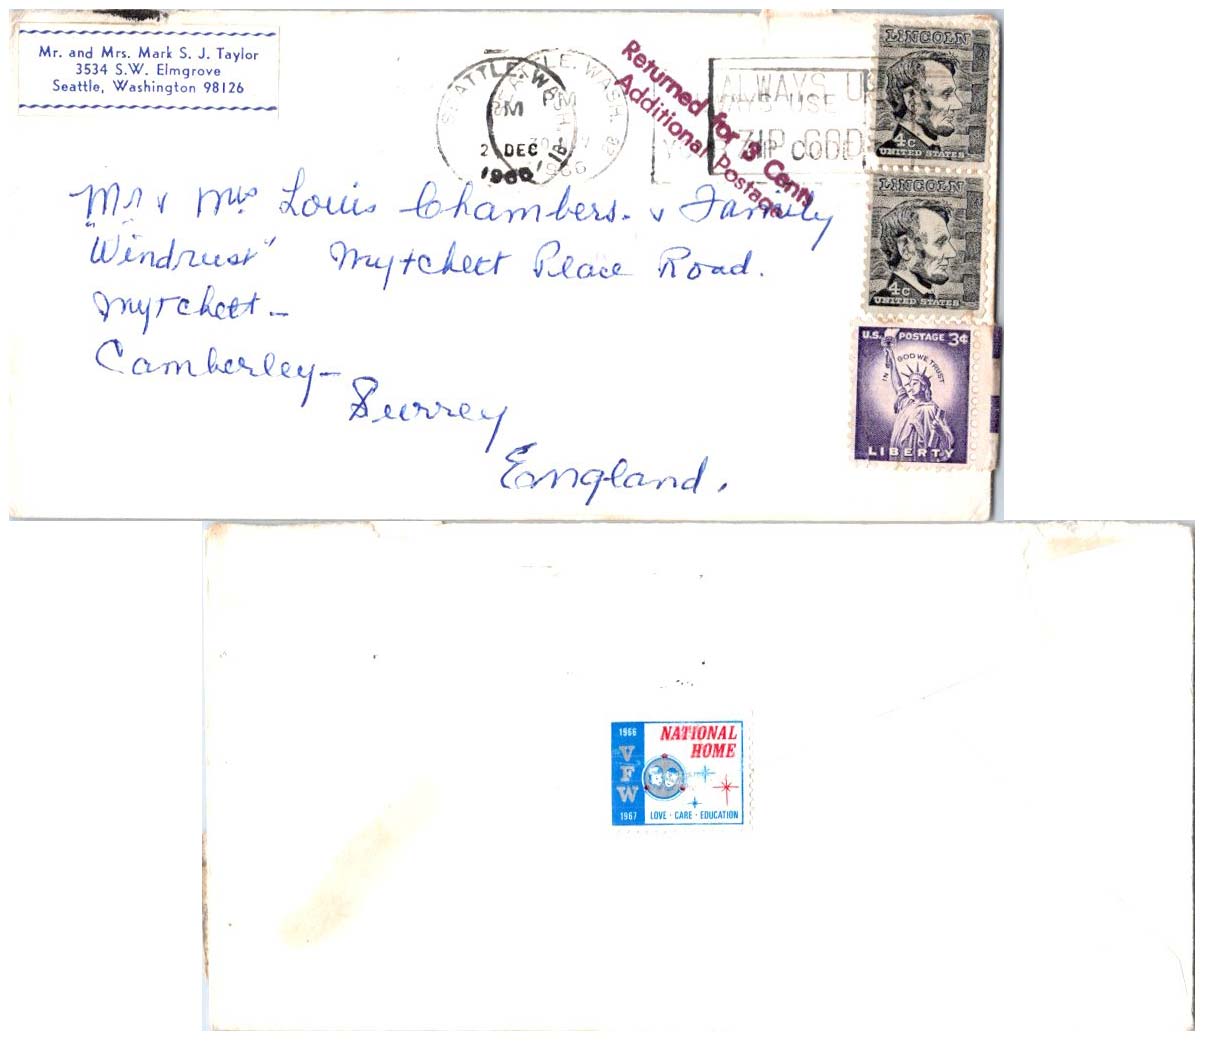 Mr. and Mrs. Mark S. J. Taylor
3534 S.W. Elmgrove
Seattle, Washington 98126
SEATTLE, WASH.
PM
2 DEC
1966
SEATTLE, WASH.
PM
30
1966
ALWAYS USE
ZIP CODE
Returned for 3 Cents
Additional Postage
LINCOLN
4c
UNITED STATES
LINCOLN
4c
UNITED STATES
U.S. POSTAGE 3¢
IN GOD WE TRUST
LIBERTY
Mr & Mrs Louis Chambers. & Family
"Windrust" Mytchett Place Road.
Mytchett -
Camberley -
Surrey
England.
1966
VFW
1967
NATIONAL
HOME
LOVE · CARE · EDUCATION